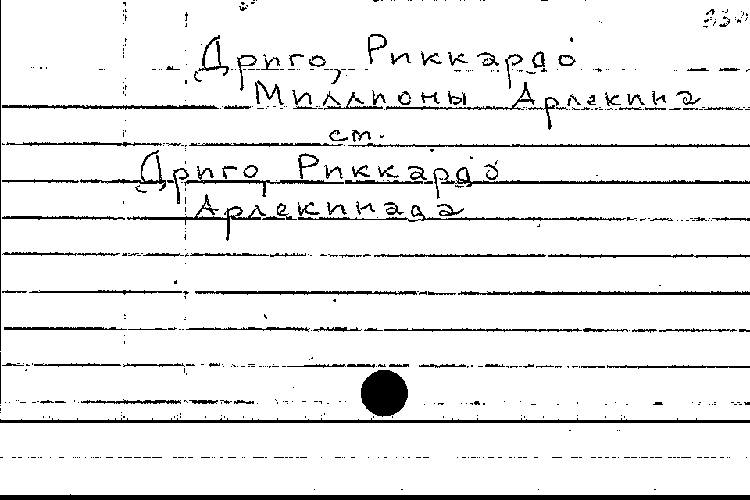 Дриго, Риккардо
Миллионы Арлекина
см.
Дриго, Риккардо
Арлекинада